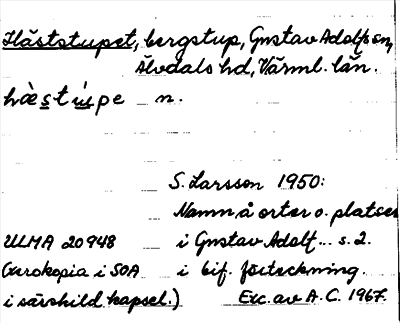 Häststupet, bergstup, Gustav Adolfs sn,
Älvdals hd, Värml. län.
hæ̀stú̱pe n.
S. Larsson 1950:
Namn å orter o. platser
ULMA 20948 i Gustav Adolf... s. 2.
(xerokopia i SOA i bif. förteckning.
i särskild kapsel.) Exc. av A. C. 1967.